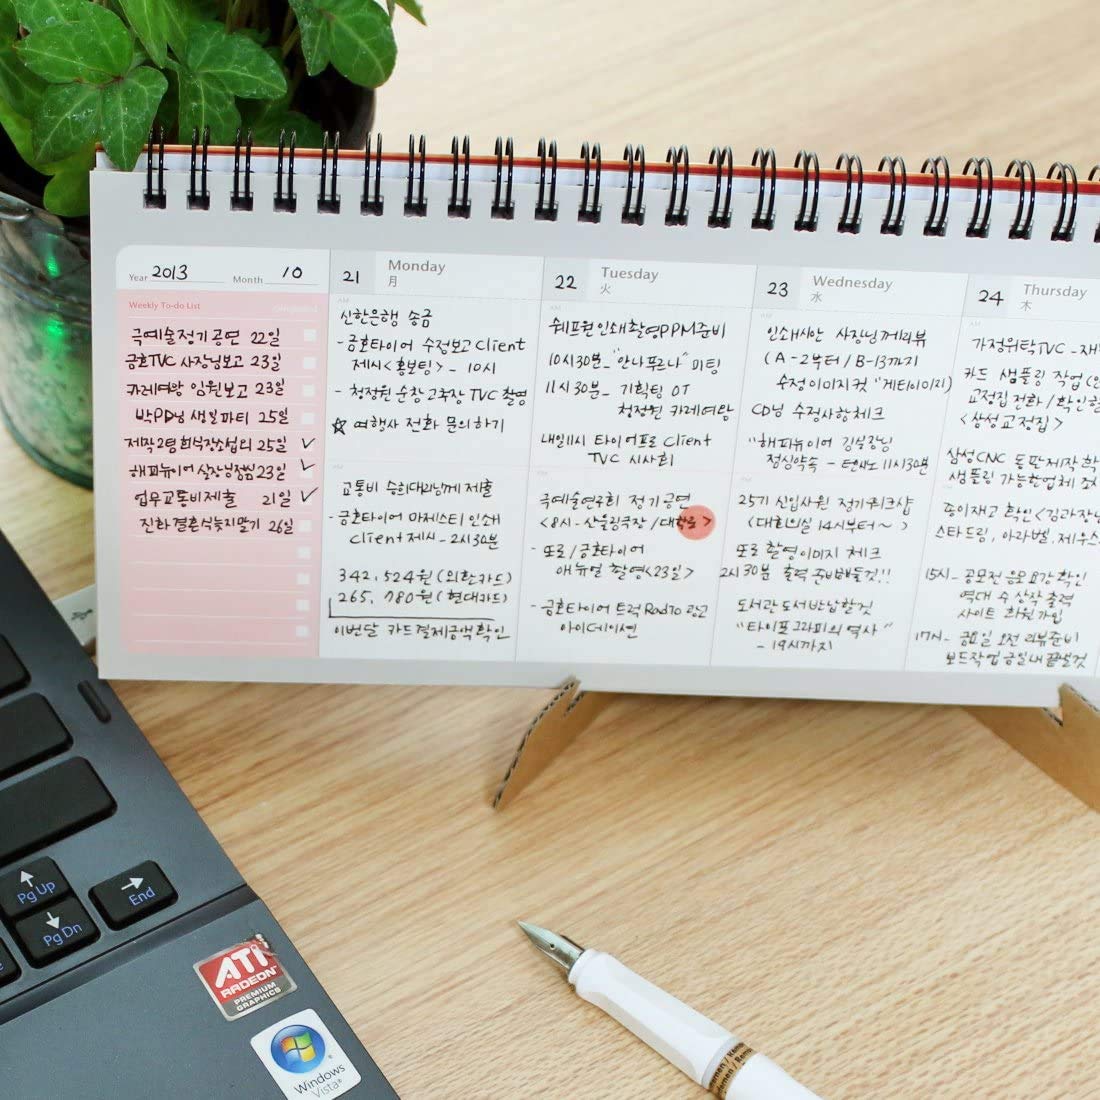 Year 2013 Month 10
Weekly To-do List
극예술정기공연 22일
금호TVC 사장님보고 23일
카레여왕 임원보고 23일
박PD님 생일파티 25일
제작2팀 회식장소섭외 25일 ✓
해피뉴이어 실장님점심 23일 ✓
업무교통비제출 21일 ✓
진화결혼식늦지말기 26일
21 Monday
月
AM
신한은행 송금
- 금호타이어 수정보고 Client
제시 <홍보팀> - 10시
- 청정원 순창고추장 TVC 촬영
☆ 여행사 전화 문의하기
교통비 승희대리님께 제출
- 금호타이어 마제스티 인쇄
Client 제시 - 2시30분
342,524원 (외환카드)
265,780원 (현대카드)
이번달 카드결제금액확인
22 Tuesday
火
AM
쉐프원인쇄촬영PPM준비
10시30분_"안나푸르나" 미팅
11시30분_ 기획팀 OT
청정원 카레여왕
내일11시 타이어프로 Client
TVC 시사회
극예술연구회 정기공연
<8시 - 산울림극장 / 대학로>
- 또로 / 금호타이어
애뉴얼 촬영 <23일>
- 금호타이어 트럭 Radio 광고
아이데이션
23 Wednesday
水
AM
인쇄시안 사장님께리뷰
(A-2부터 / B-13까지
수정이미지컷 "게티이미지)
CD님 수정사항체크
"해피뉴이어 김실장님
점심약속 - 11시30분
25기 신입사원 정기워크샵
(대회의실 14시부터~ )
또로 촬영이미지 체크
2시30분 출력 준비해둘것!!
도서관 도서반납할것
"타이포그라피의 역사"
- 19시까지
24 Thursday
木
AM
가정위탁TVC -
카드 샘플링 작업
교정집 전화 / 확인
<삼성교정집>
삼성CNC 동판제작
샘플링 가능한업체
종이재고 확인 <김과장님
스타드림, 아라벨,
15시_ 공모전 응모요강 확인
역대 수상작 출력
사이트 회원가입
17시_ 금요일 오전 리뷰준비
보드작업 금일내 끝낼것
Pg Up
Pg Dn
End
ATI
RADEON
PREMIUM
GRAPHICS
Windows
Vista